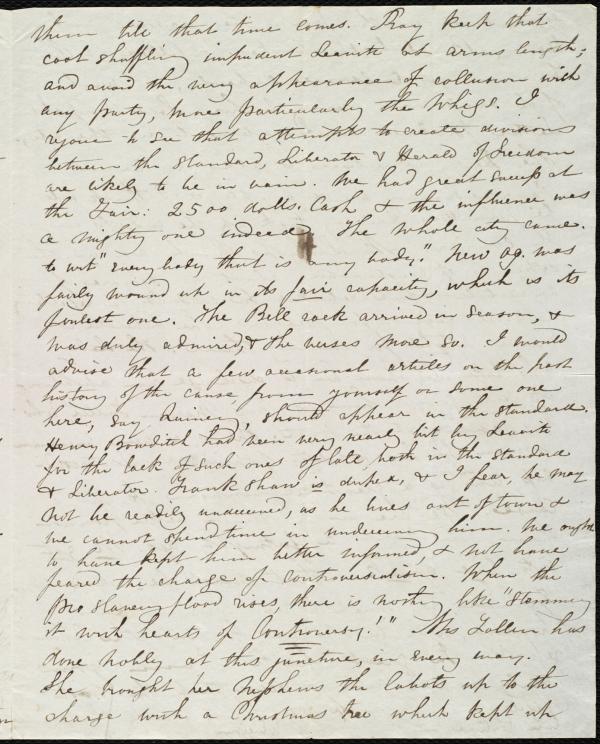 them till that time comes. Pray keep that
cool shuffling impudent Leavitt at arms length;
and avoid the very appearance of collusion with
any party, more particularly the Whigs. I
rejoice to see that attempts to create divisions
between the Standard, Liberator & Herald of Freedom
are likely to be in vain. We had great success at
the Fair: 2500 dolls. Cash & the influence was
a mighty one indeed. The whole city came.
to wit "everybody that is any body." New Og. was
fairly wound up in its fair capacity, which is its
poorest one. The Bell rack arrived in season, &
was duly admired, & the verses more so. I would
advise that a few occasional articles on the past
history of the cause from yourself or some one
here, say Quincy, should appear in the Standard.
Henry Bowditch had been very nearly bit by Leavitt
for the lack of such ones of late, both in the Standard
& Liberator. Frank Shaw is duped, & I fear, he may
not be readily undeceived, as he lives out of town &
we cannot spend time in undeceiving him. We ought
to have kept him better informed, & not have
feared the charge of controversialism. When the
Pro Slavery flood rises, there is nothing like "stemming
it with hearts of Controversy!" Mrs Follen has
done nobly at this juncture, in every way.
She brought her nephews the Cabots up to the
charge with a Christmas tree which kept up